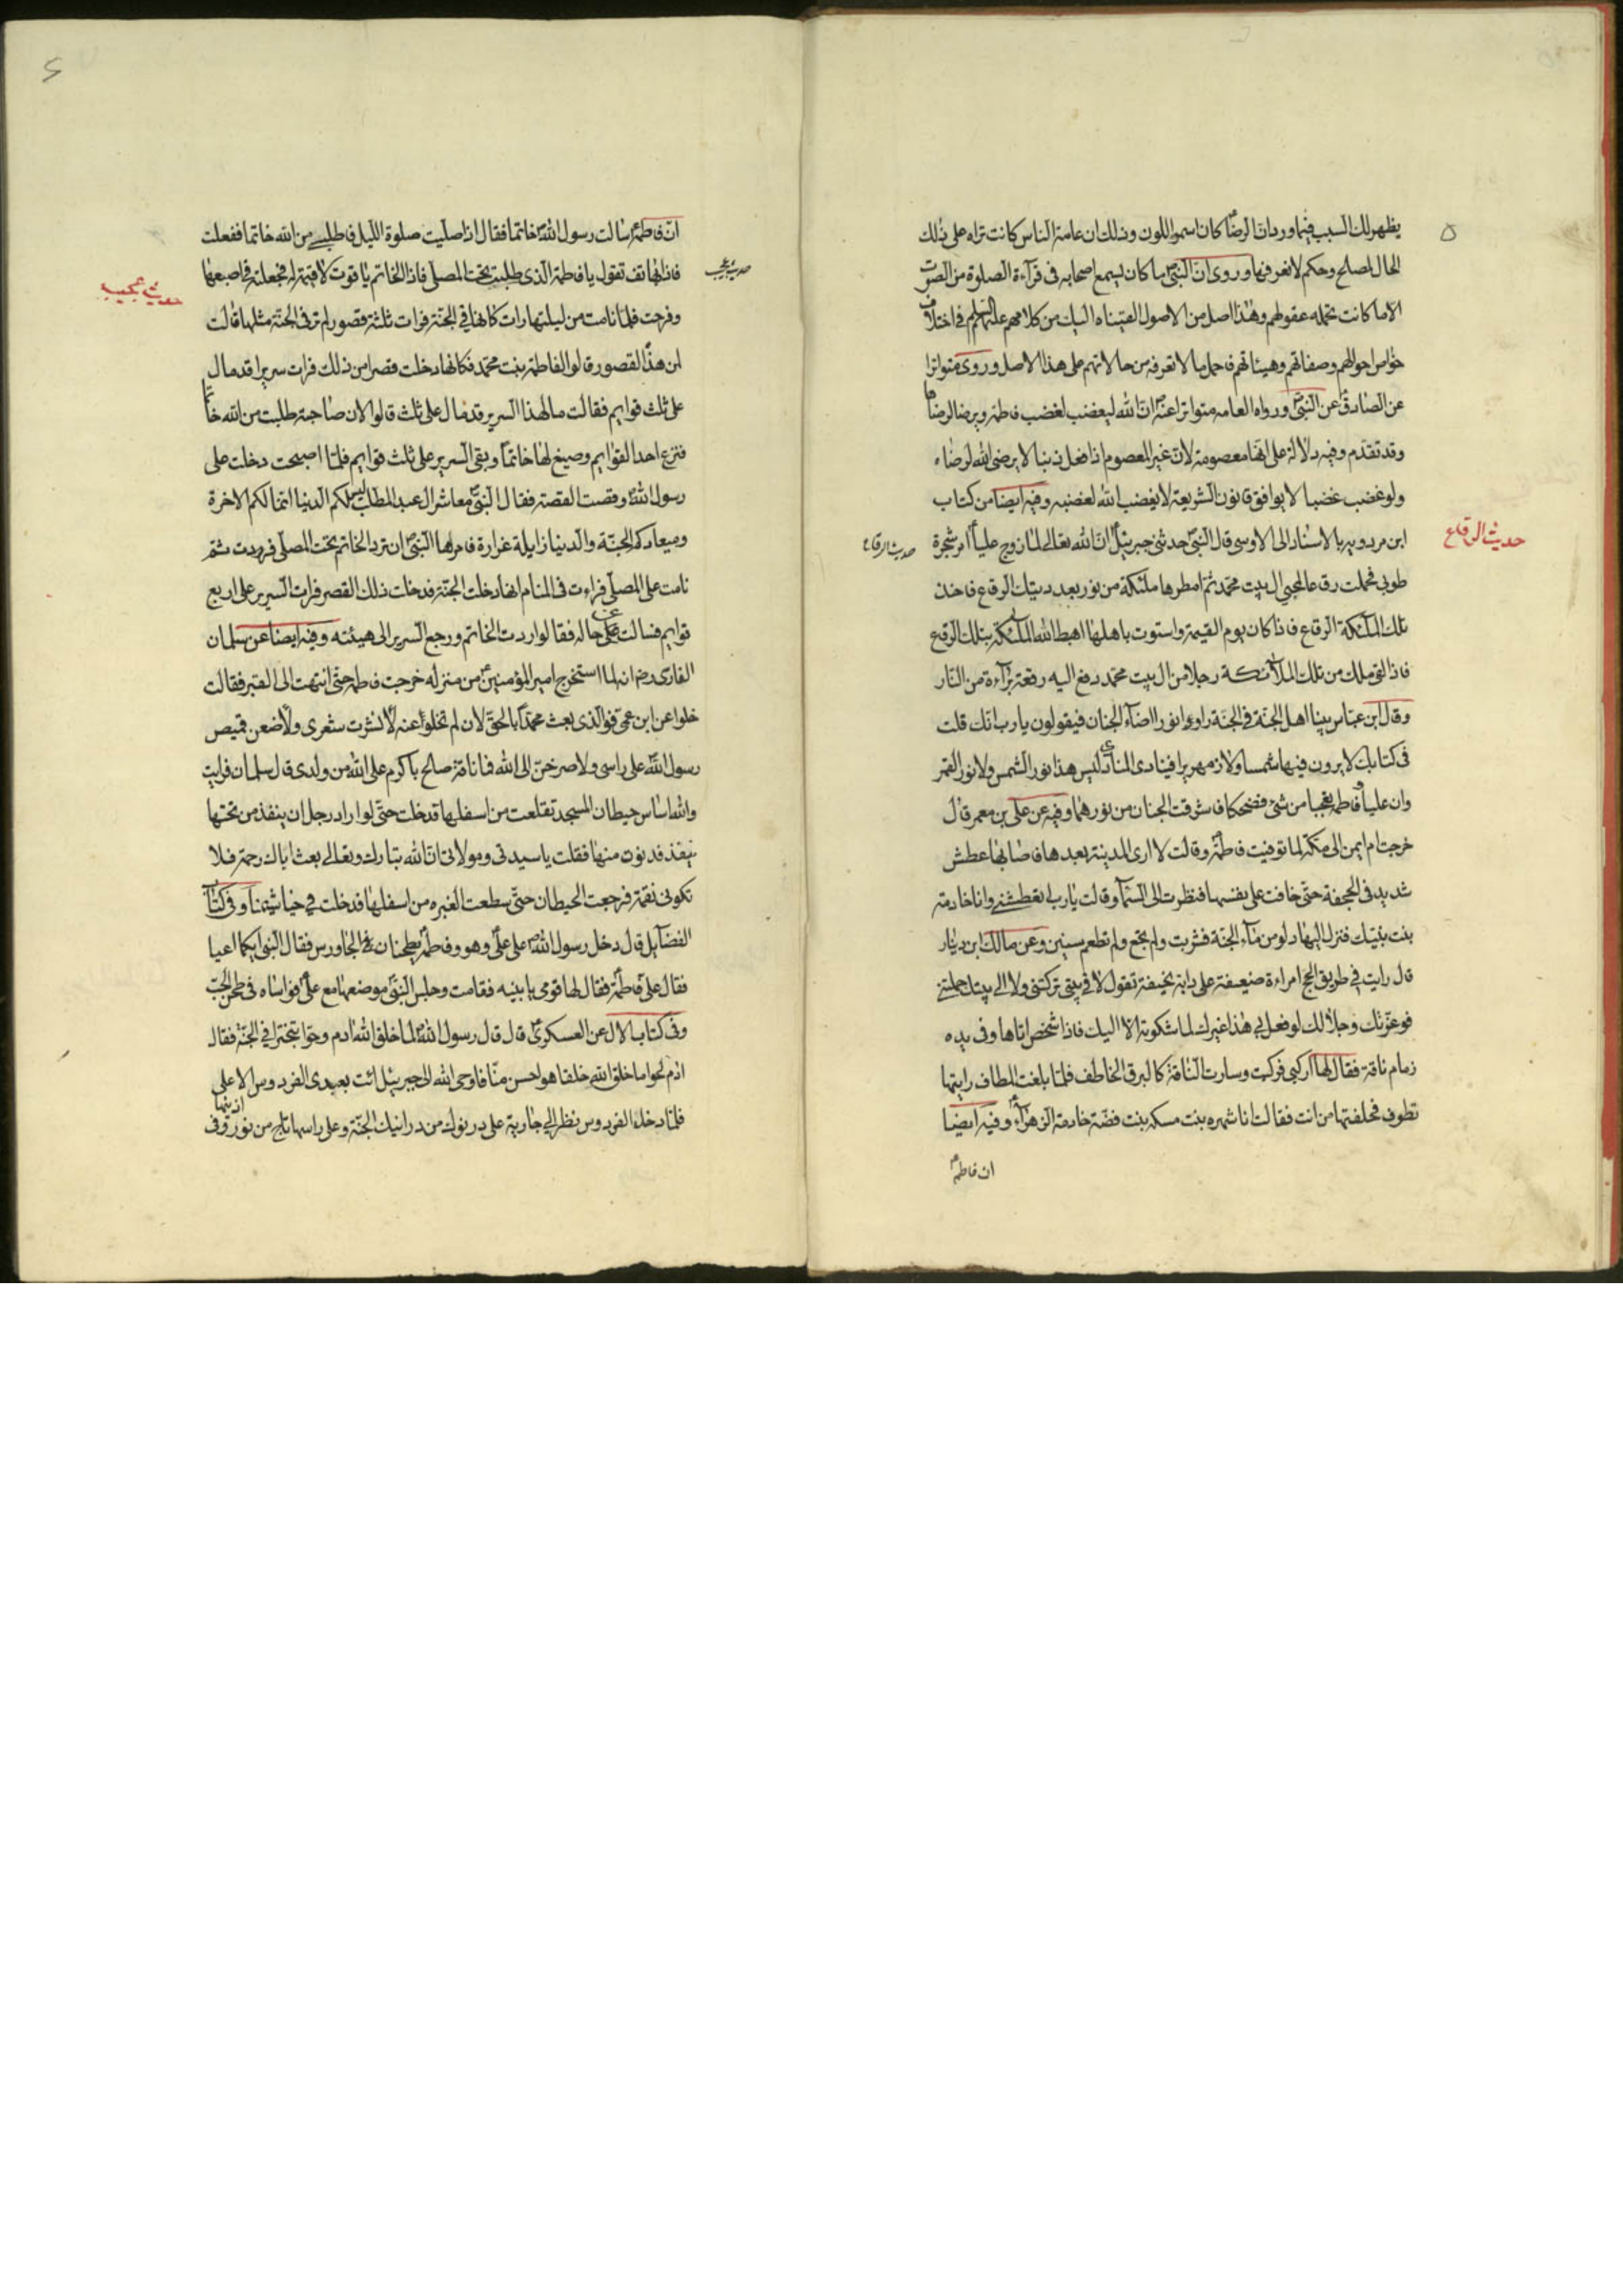 ٥
يظهر لك السبب فيما ورد ان الرضا كان اسمر اللون وذلك ان عامة الناس كانت تراه على ذلك
الحال لمصلح وحكم لا نعرفها وروى ان النبى ما كان يسمع اصحابه فى قرآءة الصلوة من الصوت
الا ما كانت تحمله عقولهم وهذا اصل من الاصول القيناه اليك من كلامهم عليهم السلم فى اختلاف
خواص احوالهم وصفاتهم وهيئاتهم فاحمل ما لا تعرفه من حالاتهم على هذا الاصل وروى متواترا
عن الصادق عن النبى ورواه العامه متواترا عنه ان الله ليغضب لغضب فاطمه ويرضا لرضاها
وقد تقدم وفيه دلالة على انها معصومة لان غير المعصوم اذا فعل ذنبا لا يرضى الله لرضاه
ولو غضب غضبا لا يوافق قانون الشريعة لا يغضب الله لغضبه وفيه ايضا من كتاب
ابن مردويه بالاسناد الى الاوسى قال النبى حدثنى جبرئيل ان الله تعالى لما زوج عليا امر شجرة
طوبى فحملت رقعا لمحبى ال بيت محمد ثم امطرها ملئكة من نور بعدد تلك الرقاع فاخذ
تلك الملئكة الرقاع فاذا كان يوم القيمة واستوت باهلها اهبط الله الملئكة بتلك الرقع
فاذا لقى ملك من تلك الملائكة رجلا من ال بيت محمد دفع اليه رقعة برآءة من النار
وقال ابن عباس بينا اهل الجنة فى الجنة راوا نورا اضآء الجنان فيقولون يا رب انك قلت
فى كتابك لا يرون فيها شمسا ولا زمهريرا فينادى المنادى ليس هذا نور الشمس ولا نور القمر
وان عليا وفاطمه تعجبا من شئ فضحكا فاشرقت الجنان من نورهما وفيه عن على بن معمر قال
خرجت ام ايمن الى مكة لما توفيت فاطمة وقالت لا ارى المدينة بعدها فاصابها عطش
شديد فى الجحفة حتى خافت على نفسها فنظرت الى السمآ وقالت يا رب اتعطشنى وانا خادمة
بنت نبيك فنزل اليها دلو من مآء الجنة فشربت ولم تجع ولم تطعم سنين وعن مالك ابن دينار
قال رايت فى طريق الحج امراءة ضعيفة على دابة نحيفة تقول لا فى بيتى تركتنى ولا الى بيتك حملتنى
فوعزتك وجلالك لو فعل بى هذا غيرك لما شكوته الا اليك فاذا شخص اتاها وفى يده
زمام ناقة فقال لها اركبى فركبت وسارت الناقة كالبرق الخاطف فلما بلغت المطاف رايتها
تطوف فحلفتها من انت فقالت انا شهره بنت مسكه بنت فضة خادمة الزهرآء وفيه ايضا
ان فاطمه
حديث الرقاع
حديث الرقاع
ان فاطمة سالت رسول الله خاتما فقال اذا صليت صلوة الليل فاطلبى من الله خاتما ففعلت
فاذا هاتف تقول يا فاطمة الذى طلبت تحت المصلى فاذا الخاتم ياقوت لا قيمة له فجعلته فى اصبعها
وفرحت فلما نامت من ليلتها رات كانها فى الجنة فرات ثلثة قصور لم تر فى الجنة مثلها قالت
لمن هذا القصور قالوا لفاطمة بنت محمد فكانها دخلت قصرا من ذلك فرات سريرا قد مال
على ثلث قوايم فقالت ما لهذا السرير قد مال على ثلث قالوا لان صاحبته طلبت من الله خاتما
فنزع احد القوايم وصيغ لها خاتما وبقى السرير على ثلث قوايم فلما اصبحت دخلت على
رسول الله وقصت القصة فقال النبى معاشر ال عبد المطلب ليس لكم الدنيا انما لكم الاخرة
وميعادكم الجنة والدنيا زايلة غرارة فامرها النبى ان ترد الخاتم تحت المصلى فردت ثم
نامت على المصلى فراءت فى المنام انها دخلت الجنة فدخلت ذلك القصر فرات السرير على اربع
قوايم فسالت عن حاله فقالوا ردت الخاتم ورجع السرير الى هيئته وفيه ايضا عن سلمان
الفارسى رض انه لما استخرج امير المؤمنين من منزله خرجت فاطمه حتى انتهت الى القبر فقالت
خلوا عن ابن عمى فوالذى بعث محمدا بالحق لان لم تخلوا عنه لانشرت شعرى ولاضعن قميص
رسول الله على راسى ولاصرخن الى الله فما ناقة صالح باكرم على الله من ولدى قال سلمان فرايت
والله اساس حيطان المسجد تقلعت من اسفلها حتى لو اراد رجل ان ينفذ من تحتها
نفذ فدنوت منها فقلت يا سيدتى ومولاتى ان الله تبارك وتعالى بعث اباك رحمة فلا
تكونى نقمة فرجعت الحيطان حتى سطعت الغبره من اسفلها فدخلت فى خياشيمنا وفى كتاب
الفضآيل قال دخل رسول الله على على وهو وفاطمه يطحنان فى الجاورس فقال النبى ايكما اعيا
فقال على فاطمة فقال لها قومى يا بنيه فقامت وجلس النبى موضعها مع على فواساه فى طحن الحب
وفى كتاب الال عن العسكرى قال قال رسول الله لما خلق الله ادم وحوا تبخترا فى الجنة فقال
ادم لحوا ما خلق الله خلقا هو احسن منا فاوحى الله الى جبرئيل ائت بعبدى الفردوس الاعلى
فلما دخلا الفردوس نظر الى جارية على درنوك من درانيك الجنة وعلى راسها تاج من نور وفى اذنيها
حديث عجيب
حديث عجيب